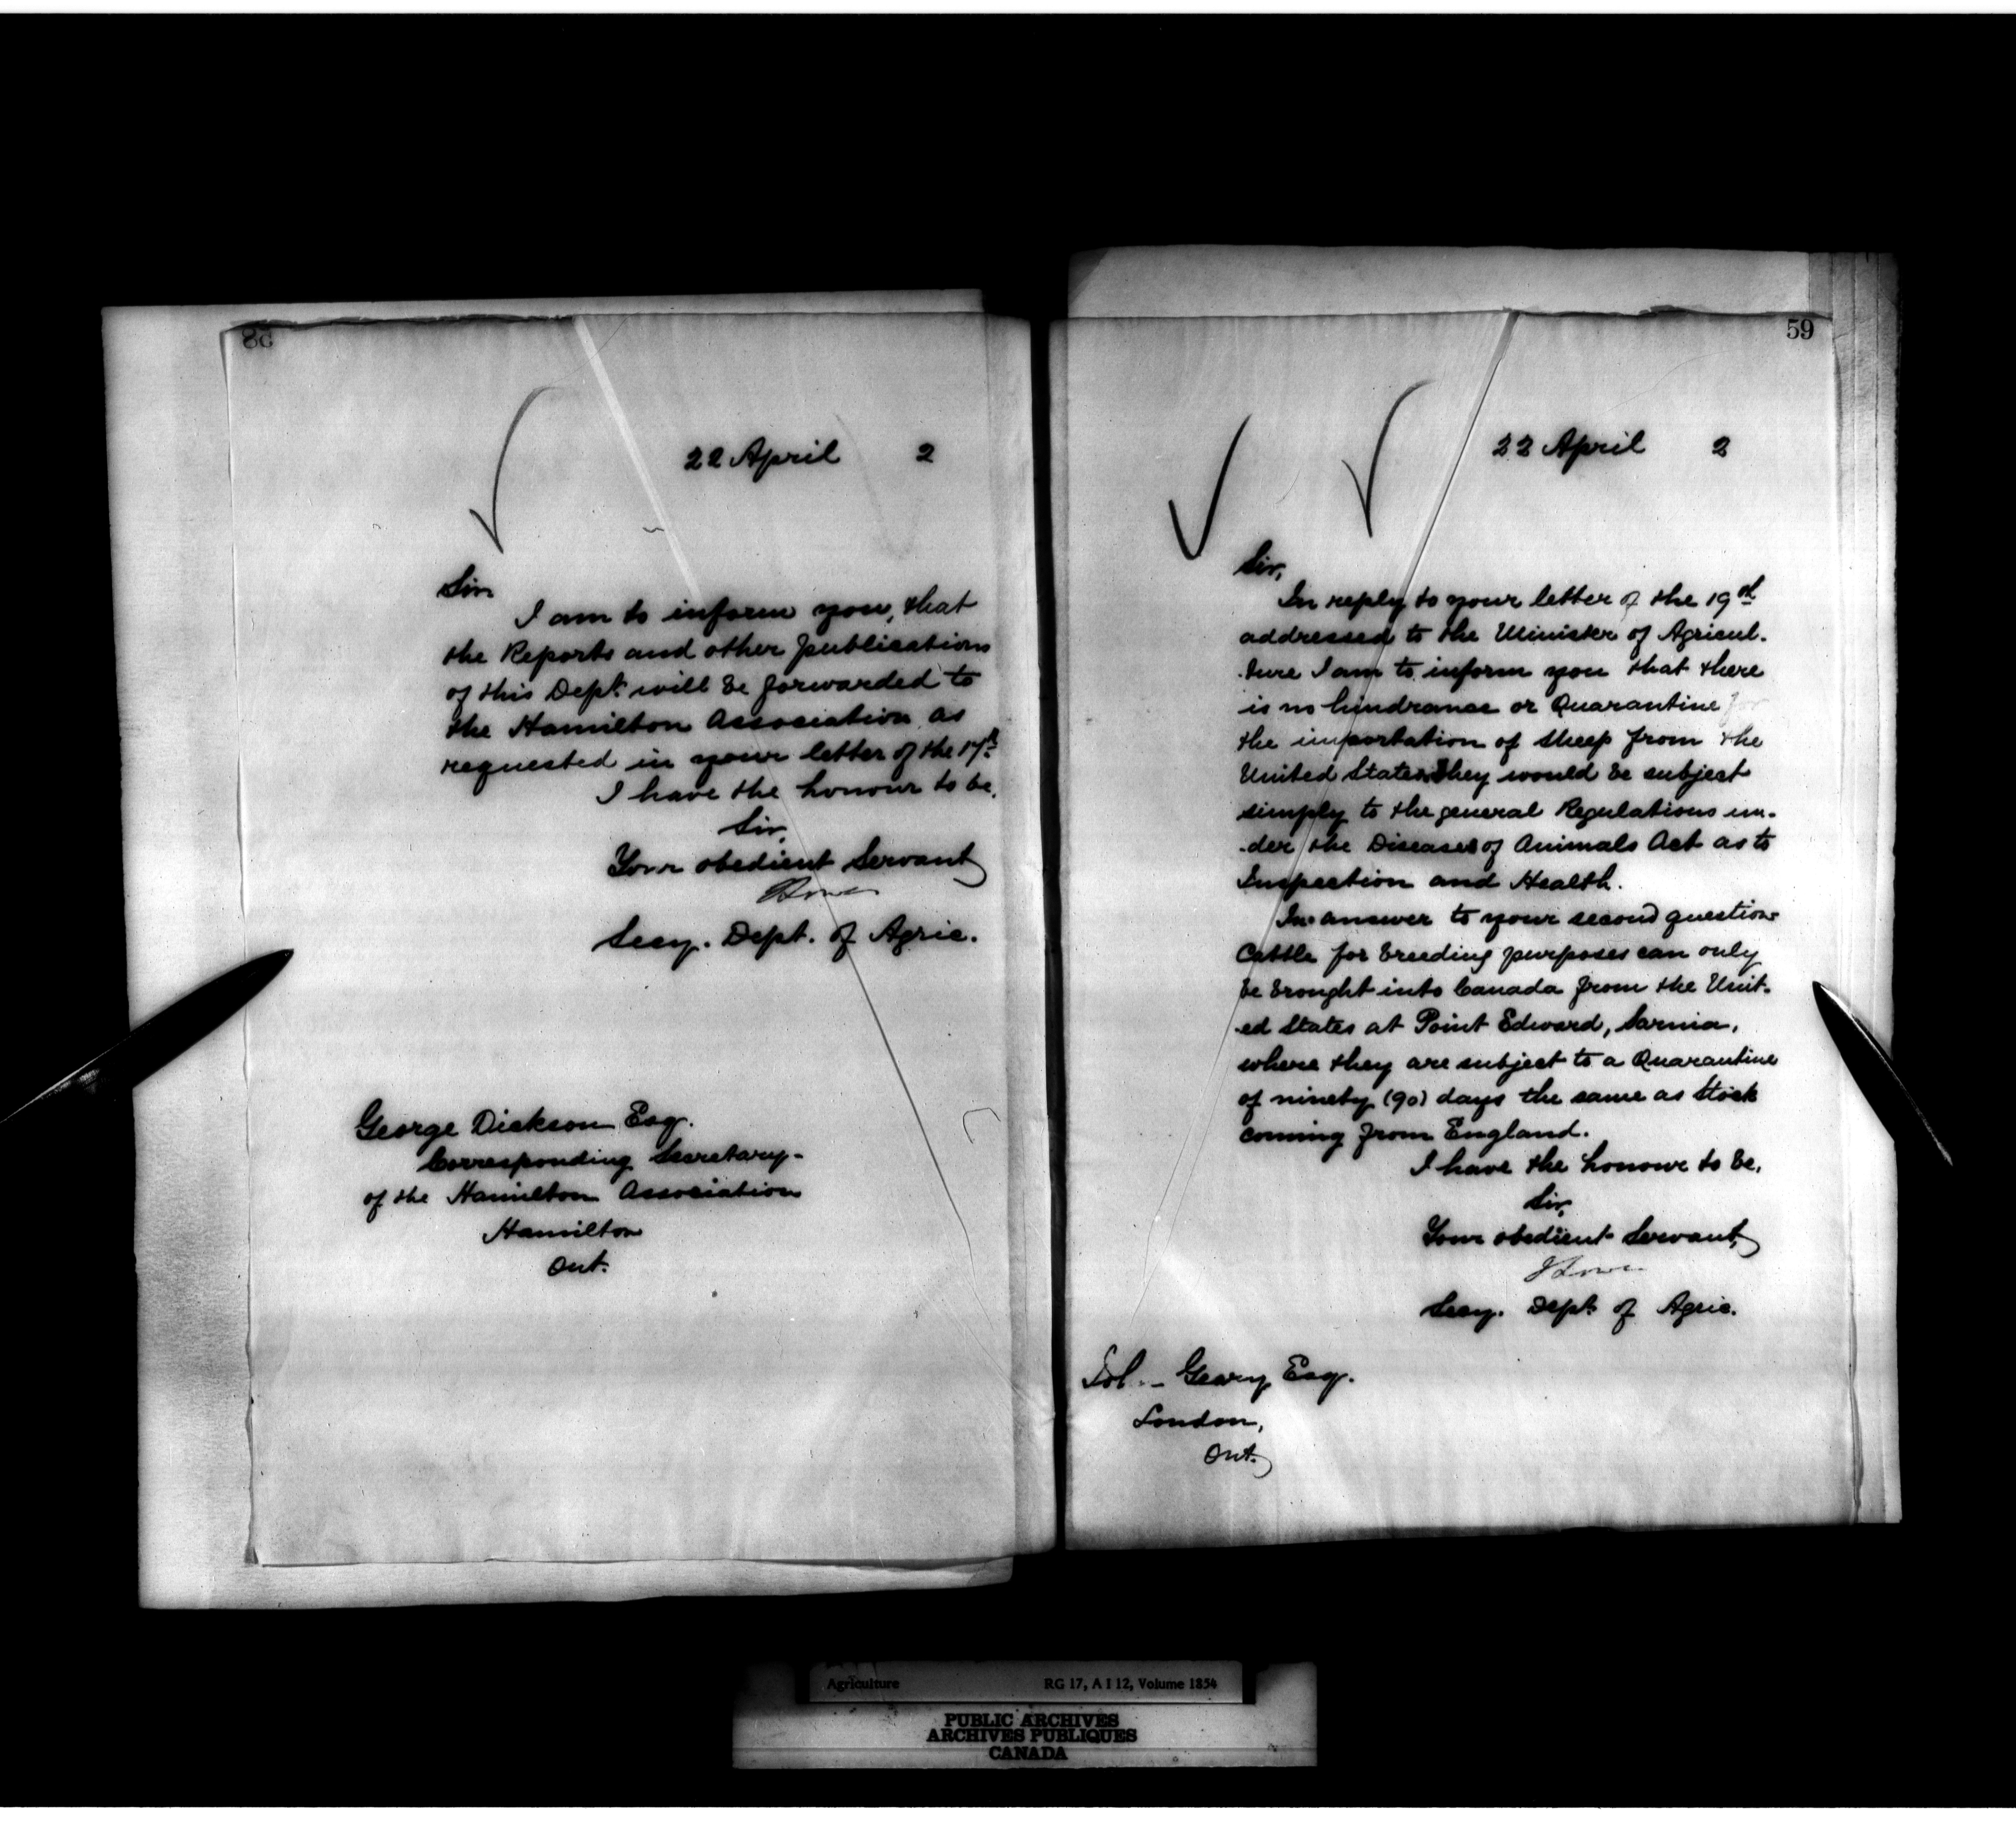 58
22 April 2
Sir
I am to inform you, that
the Reports and other publications
of this Dept. will be forwarded to
the Hamilton Association as
requested in your letter of the 17th
I have the honour to be,
Sir,
Your obedient Servant
Lowe
Secy. Dept. of Agric.
George Dickson Esq.
Corresponding Secretary
of the Hamilton Association
Hamilton
Ont.
59
22 April 2
Sir,
In reply to your letter of the 19th
addressed to the Minister of Agricul-
-ture I am to inform you that there
is no hindrance or Quarantine for
the importation of sheep from the
United States. They would be subject
simply to the general Regulations un-
-der the Diseases of Animals Act as to
Inspection and Health.
In answer to your second question
Cattle for breeding purposes can only
be brought into Canada from the Unit-
-ed States at Point Edward, Sarnia,
where they are subject to a Quarantine
of ninety (90) days the same as Stock
coming from England.
I have the honour to be,
Sir,
Your obedient Servant,
J Lowe
Secy. Dept. of Agric.
Geary Esq.
London,
Ont.
Agriculture RG 17, A I 12, Volume 1854
PUBLIC ARCHIVES
ARCHIVES PUBLIQUES
CANADA